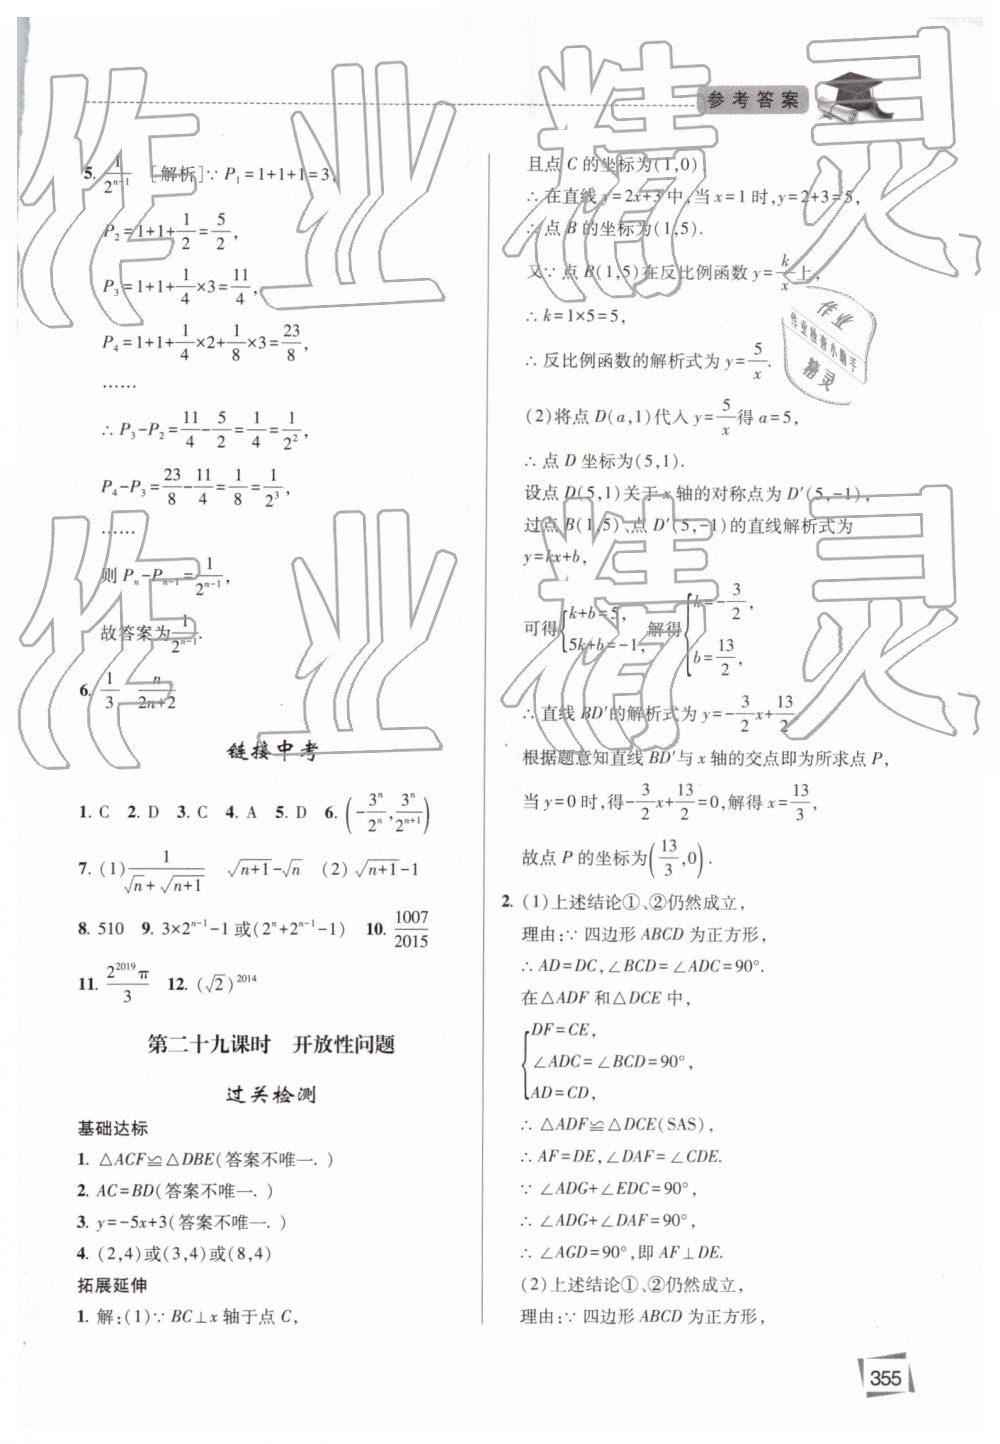 参考答案
5. 1/2^{n-1} [解析]∵P₁=1+1+1=3,
P₂=1+1+1/2=5/2,
P₃=1+1+1/4×3=11/4,
P₄=1+1+1/4×2+1/8×3=23/8,
……
∴P₃-P₂=11/4-5/2=1/4=1/2²,
P₄-P₃=23/8-11/4=1/8=1/2³,
……
则 Pₙ-Pₙ₋₁=1/2^{n-1},
故答案为1/2^{n-1}.
6. 1/3 n/(2n+2)
链接中考
1. C 2. D 3. C 4. A 5. D 6. (-3ⁿ/2ⁿ, 3ⁿ/2^{n+1})
7. (1) 1/(√n+√(n+1)) √(n+1)-√n (2) √(n+1)-1
8. 510 9. 3×2^{n-1}-1 或(2ⁿ+2^{n-1}-1) 10. 1007/2015
11. 2^{2019}π/3 12. (√2)^{2014}
第二十九课时 开放性问题
过关检测
基础达标
1. △ACF≌△DBE(答案不唯一.)
2. AC=BD(答案不唯一.)
3. y=-5x+3(答案不唯一.)
4. (2,4)或(3,4)或(8,4)
拓展延伸
1. 解:(1)∵BC⊥x 轴于点 C,
且点 C 的坐标为(1,0),
∴在直线 y=2x+3 中,当 x=1 时,y=2+3=5,
∴点 B 的坐标为(1,5).
又∵点 B(1,5)在反比例函数 y=k/x 上,
∴k=1×5=5,
∴反比例函数的解析式为 y=5/x.
(2)将点 D(a,1)代入 y=5/x 得 a=5,
∴点 D 坐标为(5,1).
设点 D(5,1)关于 x 轴的对称点为 D′(5,-1),
过点 B(1,5)、点 D′(5,-1)的直线解析式为
y=kx+b,
可得{k+b=5, 5k+b=-1, 解得{k=-3/2, b=13/2,
∴直线 BD′的解析式为 y=-3/2x+13/2
根据题意知直线 BD′与 x 轴的交点即为所求点 P,
当 y=0 时,得-3/2x+13/2=0,解得 x=13/3,
故点 P 的坐标为(13/3,0).
2. (1)上述结论①、②仍然成立,
理由:∵四边形 ABCD 为正方形,
∴AD=DC,∠BCD=∠ADC=90°.
在△ADF 和△DCE 中,
{DF=CE,
∠ADC=∠BCD=90°,
AD=CD,
∴△ADF≌△DCE(SAS),
∴AF=DE,∠DAF=∠CDE.
∵∠ADG+∠EDC=90°,
∴∠ADG+∠DAF=90°,
∴∠AGD=90°,即 AF⊥DE.
(2)上述结论①、②仍然成立,
理由:∵四边形 ABCD 为正方形,
355
作业精灵
作业精灵
作业
作业检查小助手
精灵